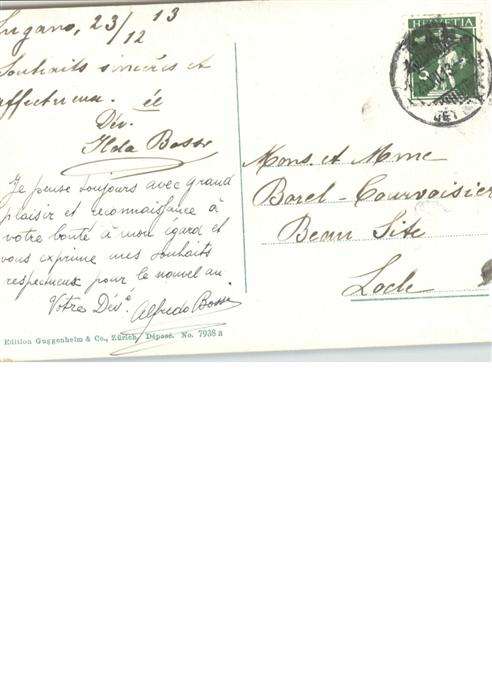 Lugano, 23/12 13
Souhaits sincères et
affectueux. 
Dév.
Ilda Bossi
Je pense toujours avec grand
plaisir et reconnaissance à
votre bonté à mon égard et
vous exprime mes souhaits
respectueux pour le nouvel an.
Votre Dév.é
Alfredo Bossi
Edition Guggenheim & Co., Zürich, Déposé. No. 7938 a
HELVETIA
5
Mons. et Mme
Borel-Courvoisier
Beau Site
Locle